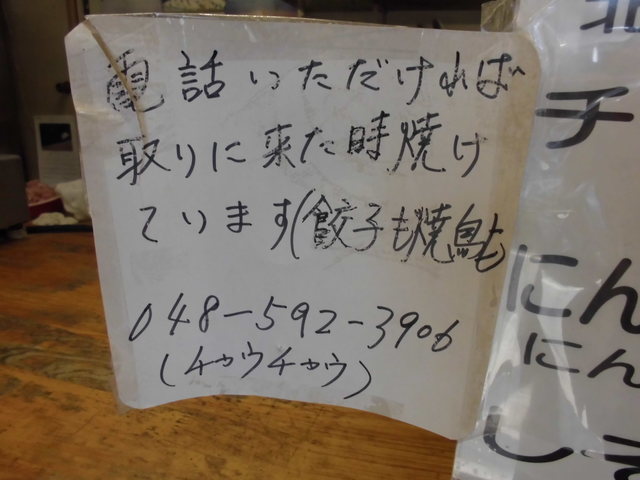 電話いただければ
取りに来た時焼け
ています(餃子も焼鳥も
048-592-3906
(チャウチャウ)
北
チ
にん
にん
し